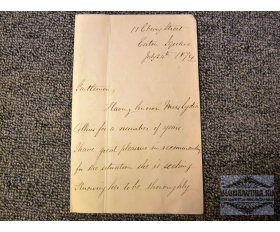 11 Ebury Street
Eaton Square
July 25th
Gentlemen,
Having known Mrs
for a number of years
I have great pleasure in recommending
for the situation she is seeking
Knowing her to be thoroughly